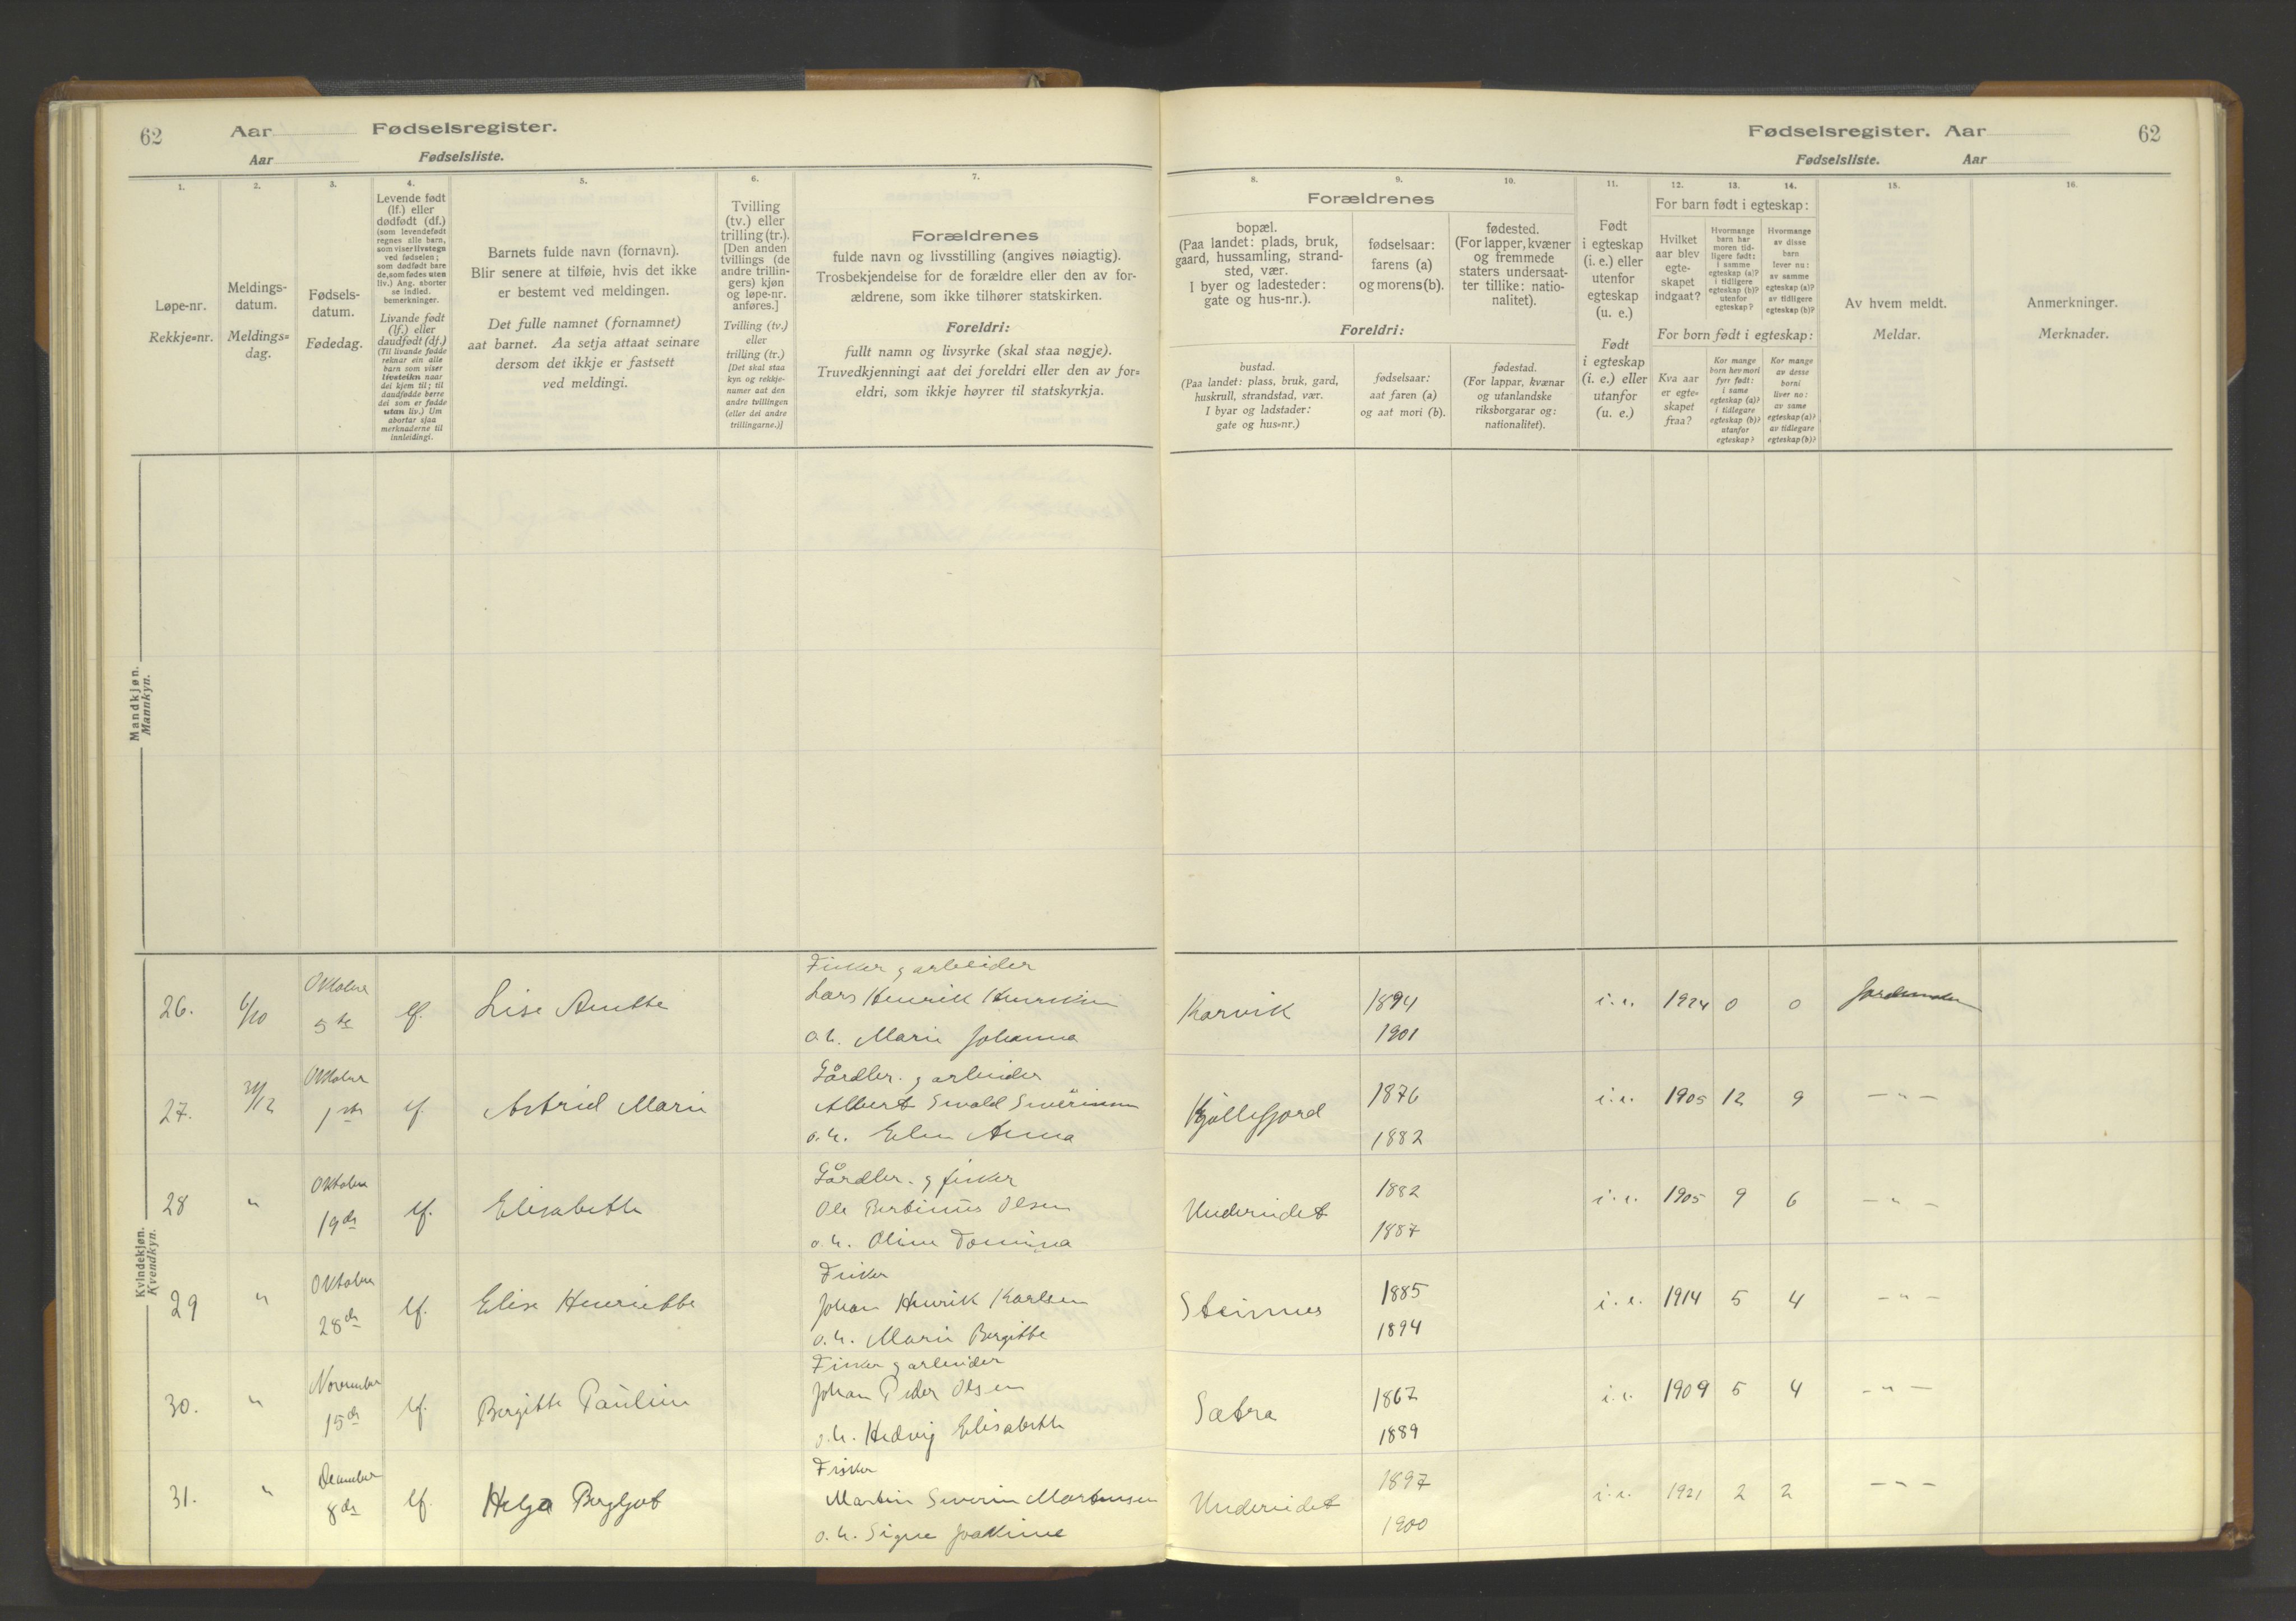 62 Aar Fødselsregister.
Aar Fødselsliste.
Fødselsregister. Aar 62
Fødselsliste. Aar
1.
Løpe-nr.
Rekkje-nr.
2.
Meldings-
datum.
Meldings-
dag.
3.
Fødsels-
datum.
Fødedag.
4.
Levende født
(lf.) eller
dødfødt (df.)
(som levendefødt
regnes alle barn,
som viser livstegn
ved fødselen;
som dødfødt bare
de, som fødes uten
liv.) Ang. aborter
se indled.
bemerkninger.
Livande født
(lf.) eller
daudfødt (df.)
(Til livande fødde
reknar ein alle
barn som viser
livsteikn naar
dei kjem til; til
daudfødde berre
dei som er fødde
utan liv.) Um
abortar sjaa
merknaderne til
innleidingi.
5.
Barnets fulde navn (fornavn).
Blir senere at tilføie, hvis det ikke
er bestemt ved meldingen.
Det fulle namnet (fornamnet)
aat barnet. Aa setja attaat seinare
dersom det ikkje er fastsett
ved meldingi.
6.
Tvilling
(tv.) eller
trilling (tr.).
[Den anden
tvillings (de
andre trillin-
gers) kjøn
og løpe-nr.
anføres.]
Tvilling (tv.)
eller
trilling (tr.)
[Det skal staa
kyn og rekkje-
numer aat den
andre tvillingen
(eller dei andre
trillingarne.)]
7.
Forældrenes
fulde navn og livsstilling (angives nøiagtig).
Trosbekjendelse for de forældre eller den av for-
ældrene, som ikke tilhører statskirken.
Foreldri:
fullt namn og livsyrke (skal staa nøgje).
Truvedkjenningi aat dei foreldri eller den av for-
eldri, som ikkje høyrer til statskyrkja.
Forældrenes
8.
bopæl.
(Paa landet: plads, bruk,
gaard, hussamling, strand-
sted, vær.
I byer og ladesteder:
gate og hus-nr.).
9.
fødselsaar:
farens (a)
og morens (b).
10.
fødested.
(For lapper, kvæner
og fremmede
staters undersaat-
ter tillike: natio-
nalitet).
Foreldri:
bustad.
(Paa landet: plass, bruk, gard,
huskrull, strandstad, vær.
I byar og ladstader:
gate og hus-nr.)
fødselsaar:
aat faren (a)
og aat mori (b).
fødestad.
(For lappar, kvænar
og utanlandske
riksborgarar og:
nationalitet).
11.
Født
i egteskap
(i. e.) eller
utenfor
egteskap
(u. e.)
Født
i egteskap
(i. e.) eller
utanfor
(u. e.)
12. 13. 14.
For barn født i egteskap:
Hvilket
aar blev
egte-
skapet
indgaat?
Hvormange
barn har
moren tid-
ligere født:
i samme
egteskap (a)?
i tidligere
egteskap (b)?
utenfor
egteskap?
Hvormange
av disse
barn
lever nu:
av samme
egteskap (a)?
av tidligere
egteskap (b)?
For born født i egteskap:
Kva aar
er egte-
skapet
fraa?
Kor mange
born hev mori
fyrr født:
i same
egteskap (a)?
i tidlegare
egteskap (b)?
utanfor
egteskap?
Kor mange
av desse
borni
liver no:
av same
egteskap (a)?
av tidlegare
egteskap (b)?
15.
Av hvem meldt.
Meldar.
16.
Anmerkninger.
Merknader.
Mandkjøn.
Mannkyn.
Kvindekjøn.
Kvendkyn.
26. 6/10 Oktober 5te lf. Lise Anette
Fisker g arbeider
Lars Henrik Henriksen
o. h. Marie Johanna
Karvik 1894 1901 i. e. 1924 0 0 Jordmoder
27. 31/12 Oktober 1ste lf. Astrid Marie
Gårdbr. g arbeider
Albert Sivald Siverinsen
o. h. Elen Anna
Kjøllefjord 1876 1882 i. e. 1905 12 9 — " —
28 " Oktober 19de lf. Elisabeth
Gårdbr. g fisker
Ole Bertinus Olsen
o. h. Oline Domina
Undereidet 1882 1887 i. e. 1905 9 6 — " —
29 " Oktober 28de lf. Elise Henriette
Fisker
Johan Henrik Karlsen
o. h. Marie Bergitte
Steinnes 1885 1894 i. e. 1914 5 4 — " —
30. " November 15de lf. Bergitte Pauline
Fisker g arbeider
Johan Peder Olsen
o. h. Hedvig Elisabeth
Sætra 1867 1889 i. e. 1909 5 4 — " —
31. " December 8de lf. Helga Bergljot
Fisker
Martin Severin Mortensen
o. h. Signe Joakime
Undereidet 1897 1900 i. e. 1921 2 2 — " —